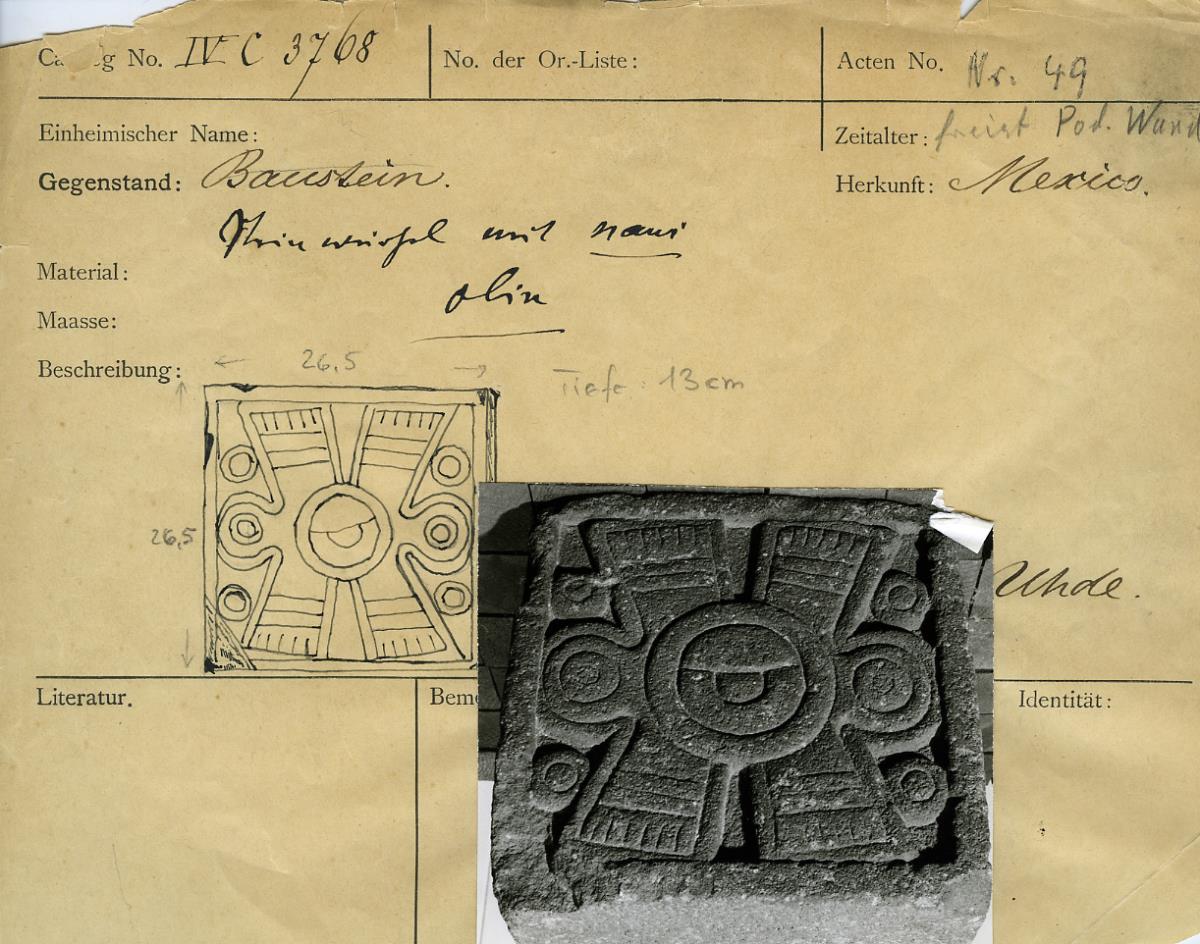 Ca g No. IV C 3768
No. der Or.-Liste:
Acten No. Nr. 49
Einheimischer Name:
Zeitalter: Pod. Wand
Gegenstand: Baustein.
Herkunft: Mexico.
Steinwürfel mit naui
olin
Material:
Maasse:
Beschreibung:
26,5
Tiefe: 13 cm
26,5
Uhde.
Literatur.
Beme
Identität: